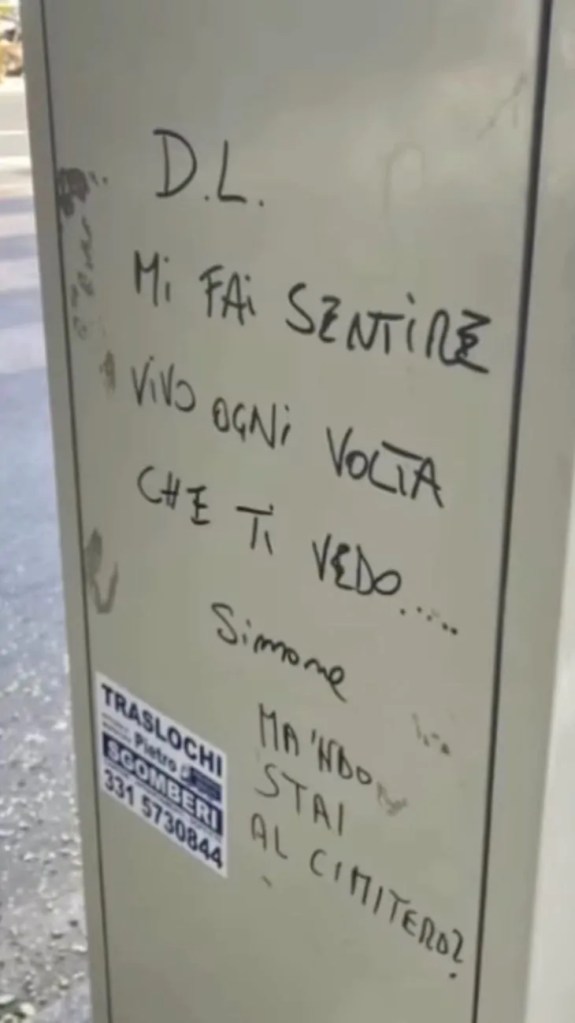 D.L.
Mi FAi SENTiRE
ViVO OGNi VOLTA
CHE Ti VEDO.....
Simone
MA 'NDO
STAI
AL CIMITERO?
TRASLOCHI
Pietro
SGOMBERI
331 5730844